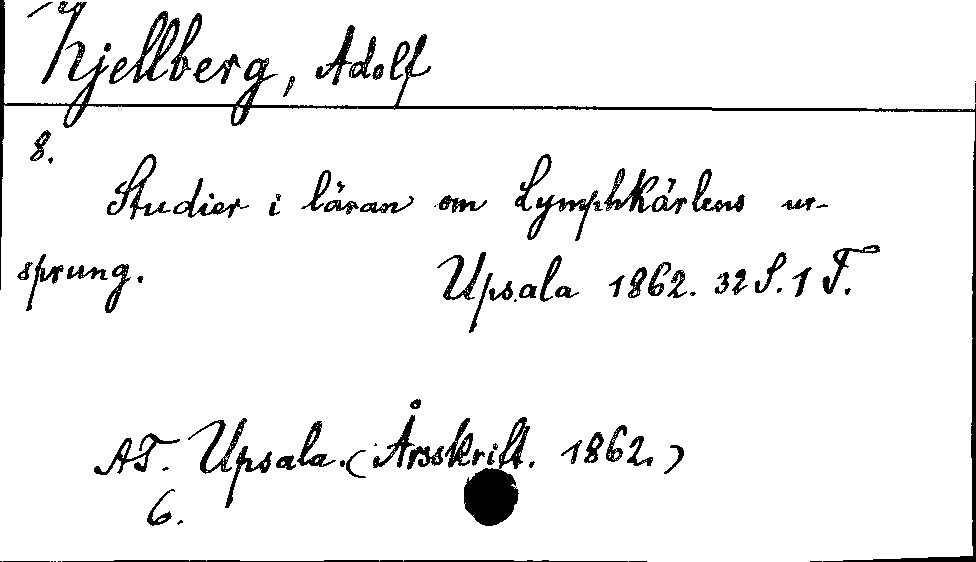 Kjellberg, Adolf
8.
Studier i läran om Lymphkärlens ur-
sprung. Upsala 1862. 32 S. 1 T.
AT. Upsala. (Årsskrift. 1862.)
6.